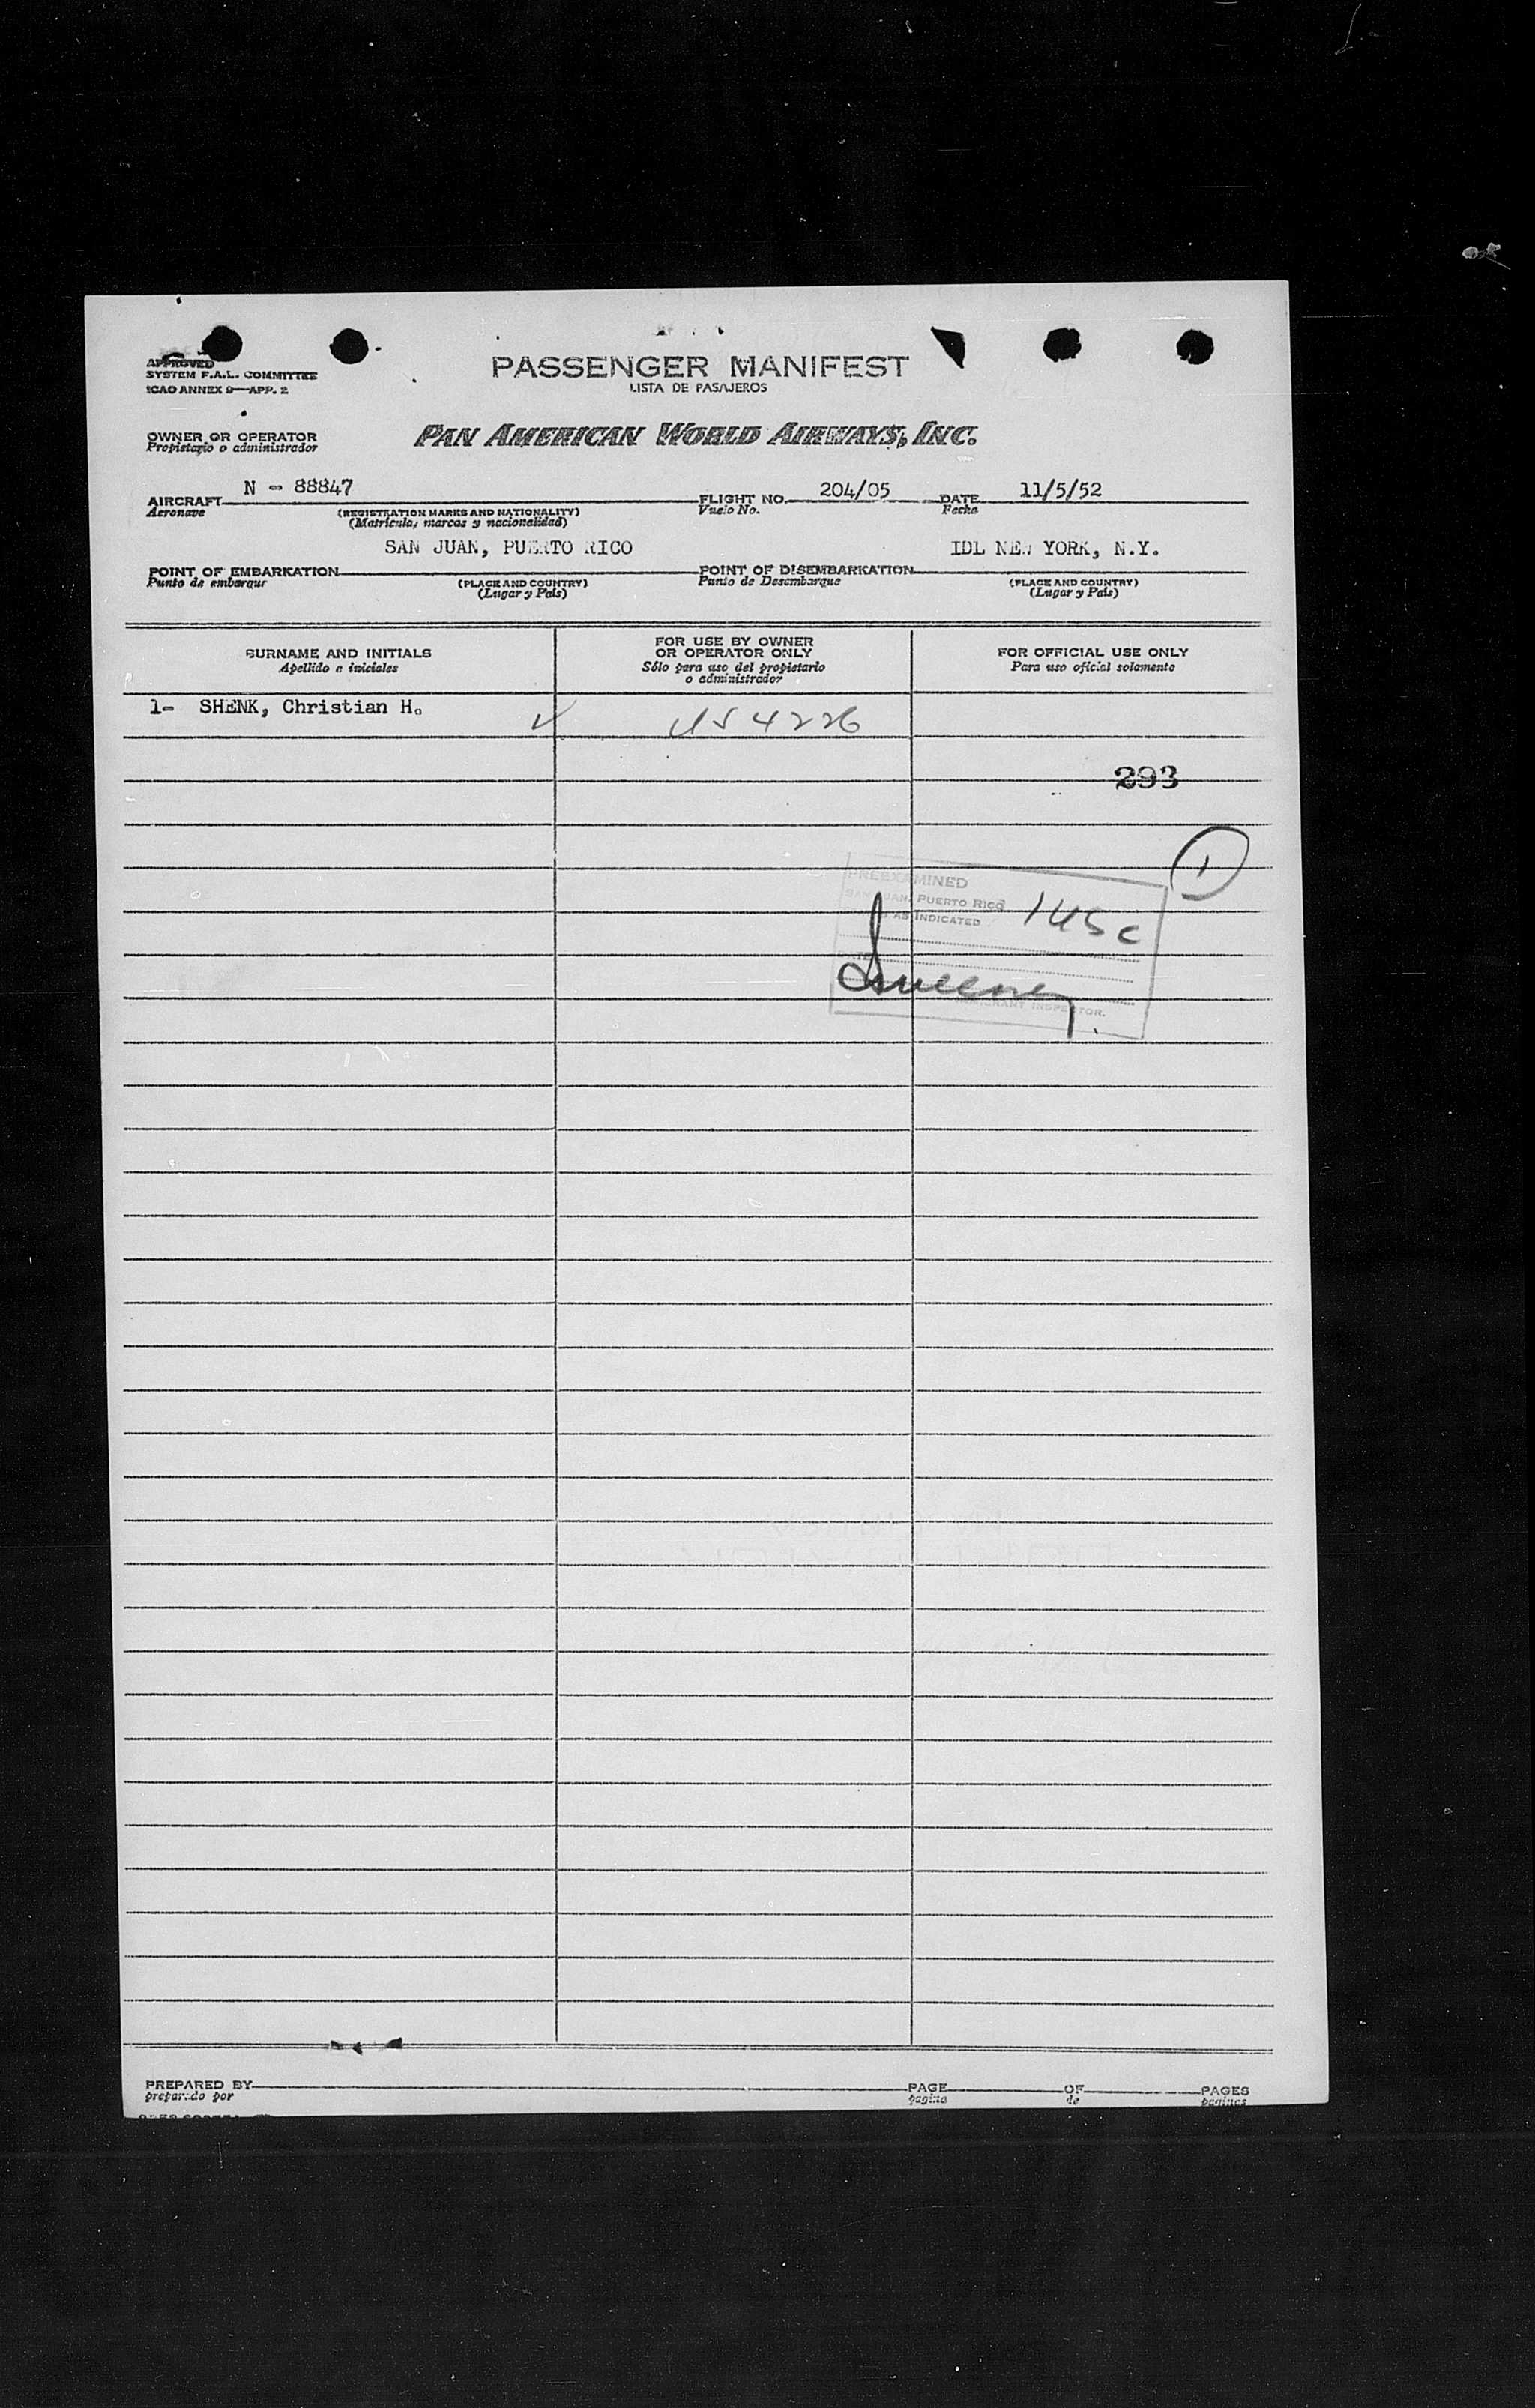 APPROVED
SYSTEM F.A.L. COMMITTEE
ICAO ANNEX 9—APP. 2
PASSENGER MANIFEST
LISTA DE PASAJEROS
OWNER OR OPERATOR
Propietario o administrador
PAN AMERICAN WORLD AIRWAYS, INC.
AIRCRAFT N - 88847 FLIGHT NO. 204/05 DATE 11/5/52
Aeronave (REGISTRATION MARKS AND NATIONALITY) Vuelo No. Fecha
(Matrícula, marcas y nacionalidad)
SAN JUAN, PUERTO RICO IDL NEW YORK, N.Y.
POINT OF EMBARKATION POINT OF DISEMBARKATION
Punto de embarque (PLACE AND COUNTRY) Punto de Desembarque (PLACE AND COUNTRY)
(Lugar y País) (Lugar y País)
SURNAME AND INITIALS
Apellido e iniciales
FOR USE BY OWNER
OR OPERATOR ONLY
Sólo para uso del propietario
o administrador
FOR OFFICIAL USE ONLY
Para uso oficial solamente
1- SHENK, Christian H. ✓ 4226
293
1
PREEXAMINED
SAN JUAN, PUERTO RICO
AS INDICATED
Sweeney
IMMIGRANT INSPECTOR.
PREPARED BY PAGE OF PAGES
preparado por pagina de paginas